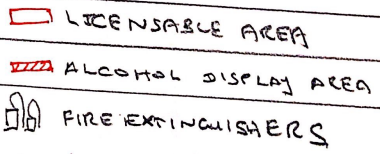 LICENSABLE AREA
ALCOHOL DISPLAY AREA
FIRE EXTINGUISHERS